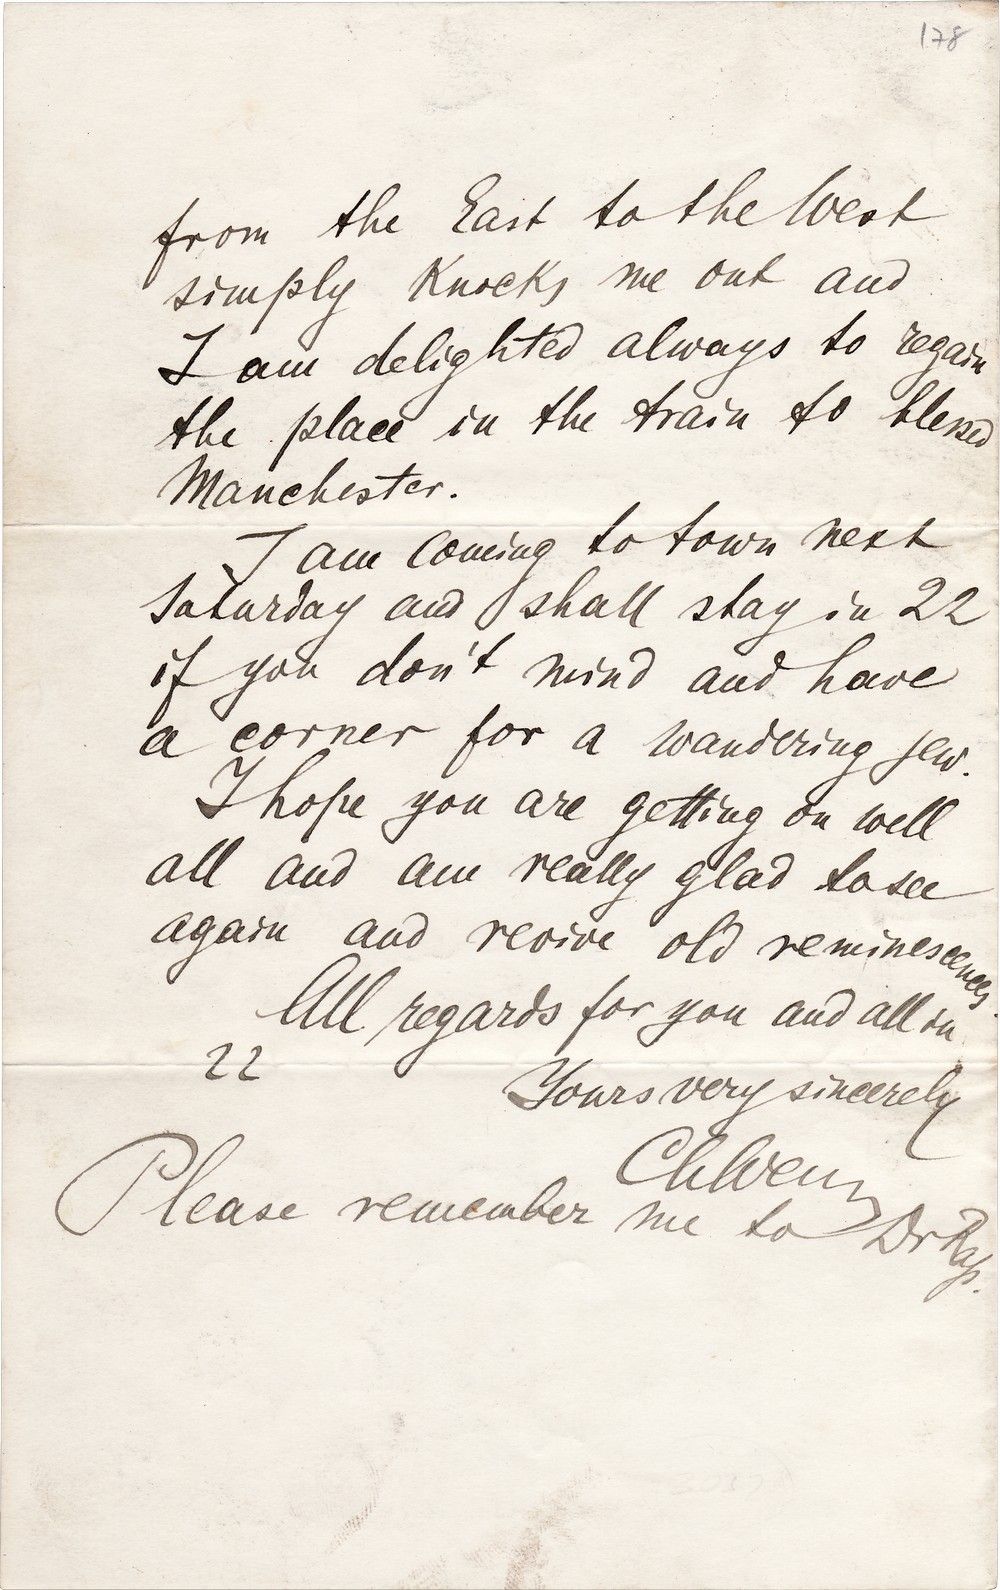 178
from the East to the West
simply knocks me out and
I am delighted always to regain
the place in the train to blessed
Manchester.
I am coming to town next
Saturday and shall stay in 22
if you don't mind and have
a corner for a wandering jew.
I hope you are getting on well
all and am really glad to see
again and revive old reminescences.
All regards for you and all in
22
Yours very sincerely
Ch Weiz
Please remember me to Dr Rap.